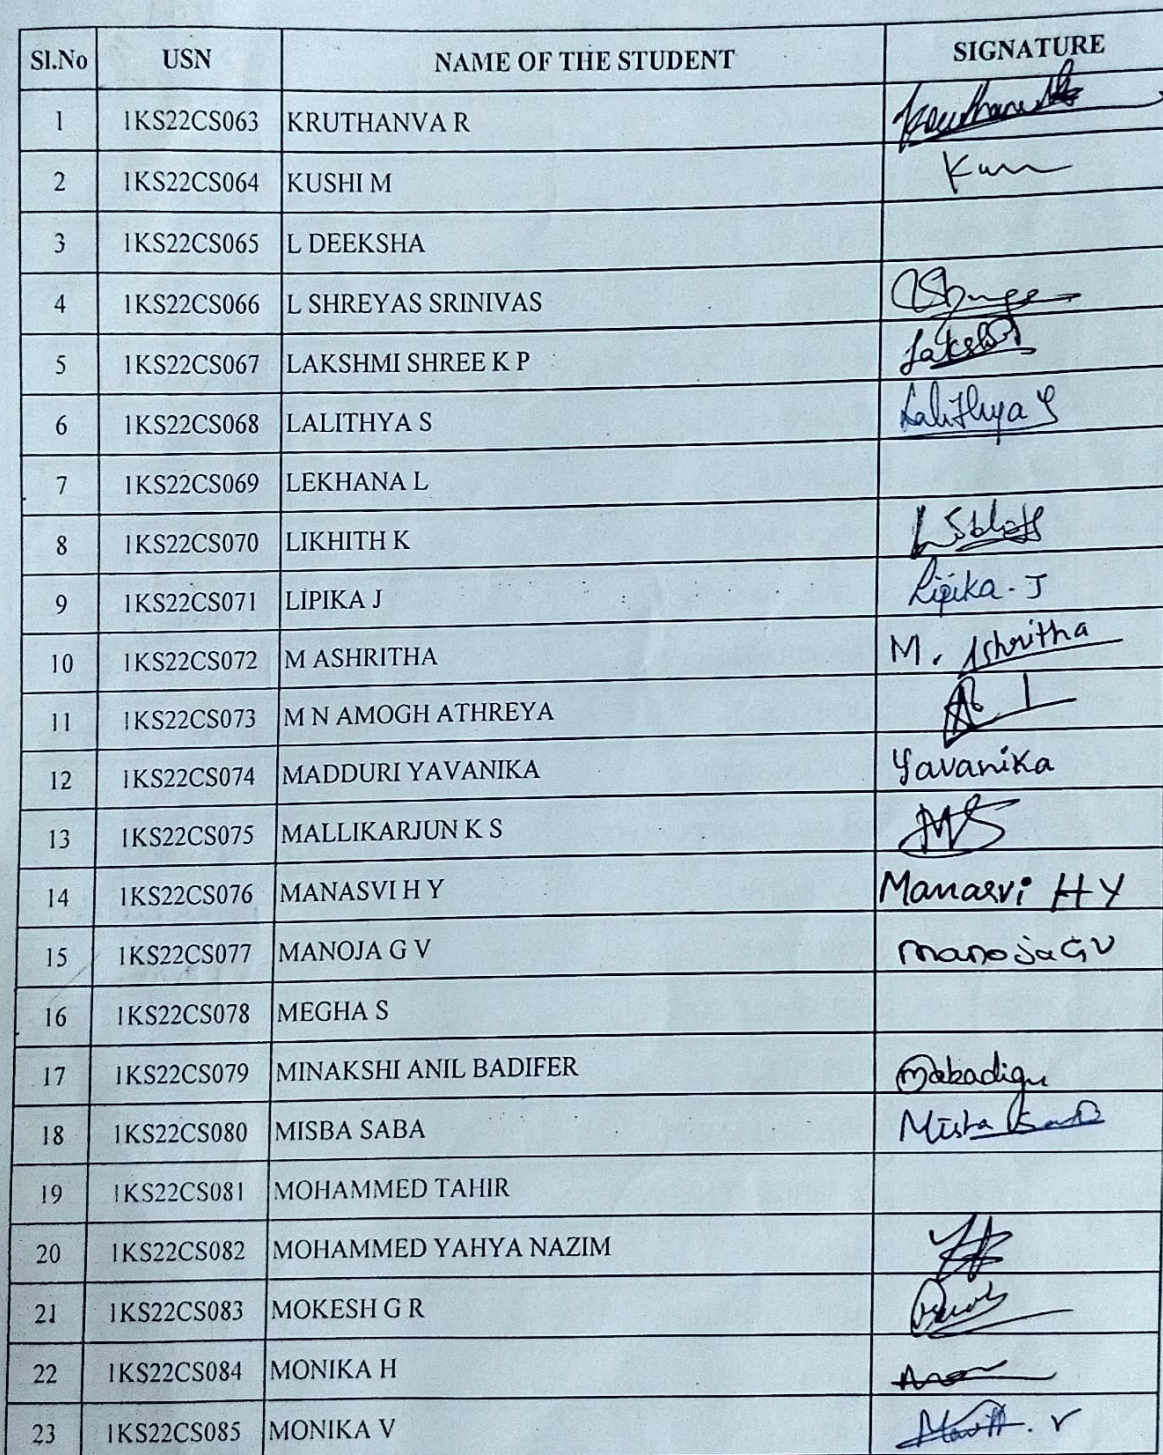 Sl.No USN NAME OF THE STUDENT SIGNATURE
1 1KS22CS063 KRUTHANVA R
2 1KS22CS064 KUSHI M
3 1KS22CS065 L DEEKSHA
4 1KS22CS066 L SHREYAS SRINIVAS
5 1KS22CS067 LAKSHMI SHREE K P
6 1KS22CS068 LALITHYA S Lalithya S
7 1KS22CS069 LEKHANA L
8 1KS22CS070 LIKHITH K
9 1KS22CS071 LIPIKA J Lipika . J
10 1KS22CS072 M ASHRITHA M. Ashritha
11 1KS22CS073 M N AMOGH ATHREYA
12 1KS22CS074 MADDURI YAVANIKA Yavanika
13 1KS22CS075 MALLIKARJUN K S
14 1KS22CS076 MANASVI H Y Manasvi H Y
15 1KS22CS077 MANOJA G V Manoja G V
16 1KS22CS078 MEGHA S
17 1KS22CS079 MINAKSHI ANIL BADIFER
18 1KS22CS080 MISBA SABA Misba Saba
19 1KS22CS081 MOHAMMED TAHIR
20 1KS22CS082 MOHAMMED YAHYA NAZIM
21 1KS22CS083 MOKESH G R
22 1KS22CS084 MONIKA H
23 1KS22CS085 MONIKA V